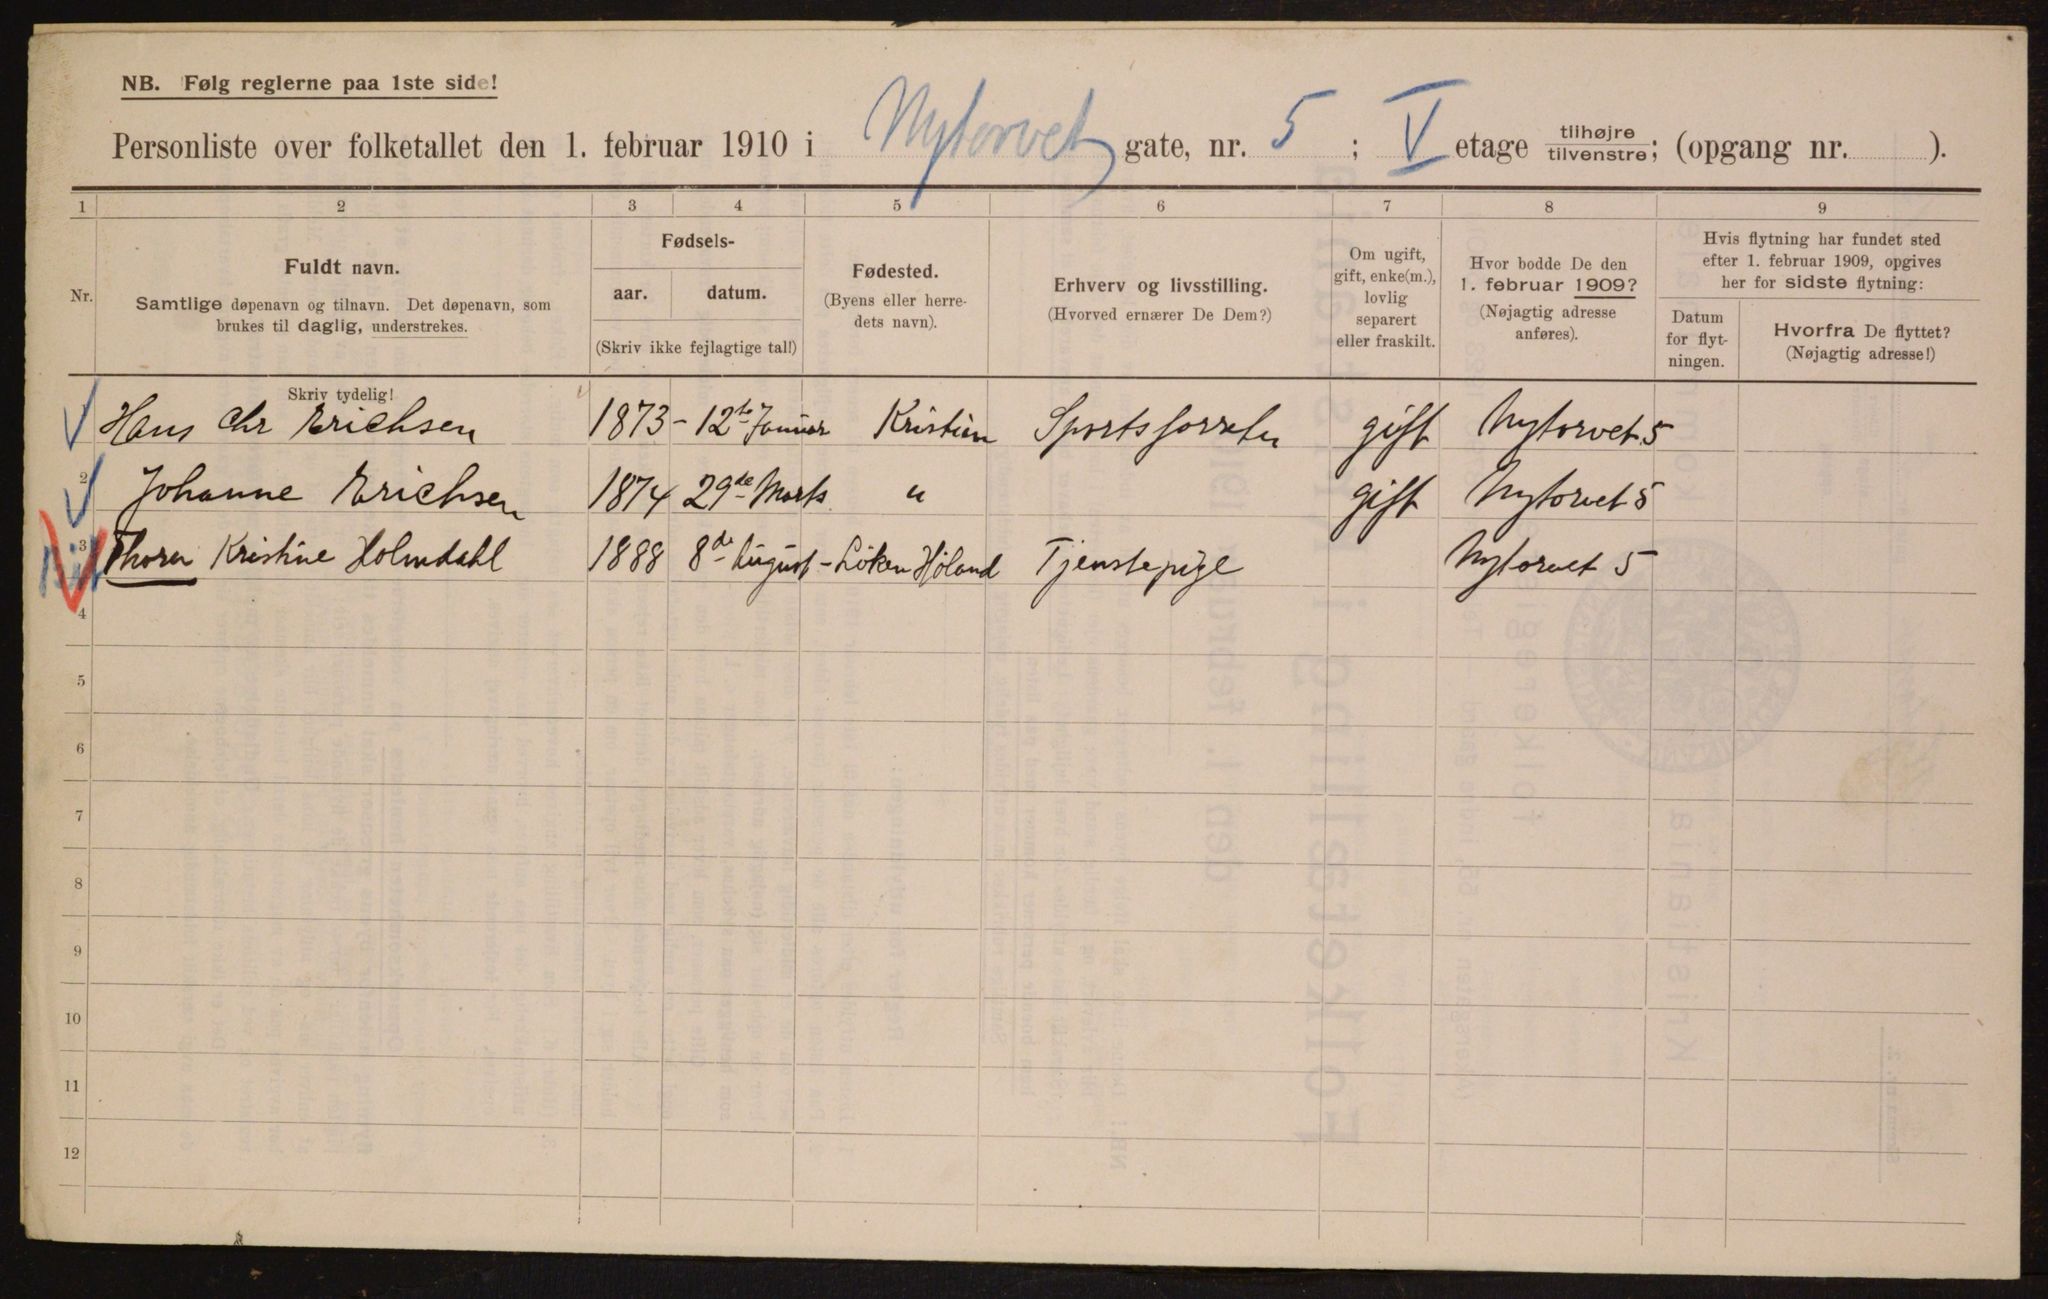 NB. Følg reglerne paa 1ste side!
Personliste over folketallet den 1. februar 1910 i Nytorvet gate, nr. 5 ; V etage tilhøjre/tilvenstre; (opgang nr. ).
1 2 3 4 5 6 7 8 9
Nr.
Fuldt navn.
Samtlige døpenavn og tilnavn. Det døpenavn, som
brukes til daglig, understrekes.
Fødsels-
aar. datum.
(Skriv ikke fejlagtige tal!)
Fødested.
(Byens eller herre-
dets navn).
Erhverv og livsstilling.
(Hvorved ernærer De Dem?)
Om ugift,
gift, enke(m.),
lovlig
separert
eller fraskilt.
Hvor bodde De den
1. februar 1909?
(Nøjagtig adresse
anføres).
Hvis flytning har fundet sted
efter 1. februar 1909, opgives
her for sidste flytning:
Datum
for flyt-
ningen.
Hvorfra De flyttet?
(Nøjagtig adresse!)
Skriv tydelig!
Hans Chr Erichsen 1873 - 12te Januar Kristian gift Nytorvet 5
2 Johanne Erichsen 1874 29de Marts " gift Nytorvet 5
3 Kristine Holmdahl 1888 8de August - Löken Höland Tjenstepige Nytorvet 5
4
5
6
7
8
9
10
11
12